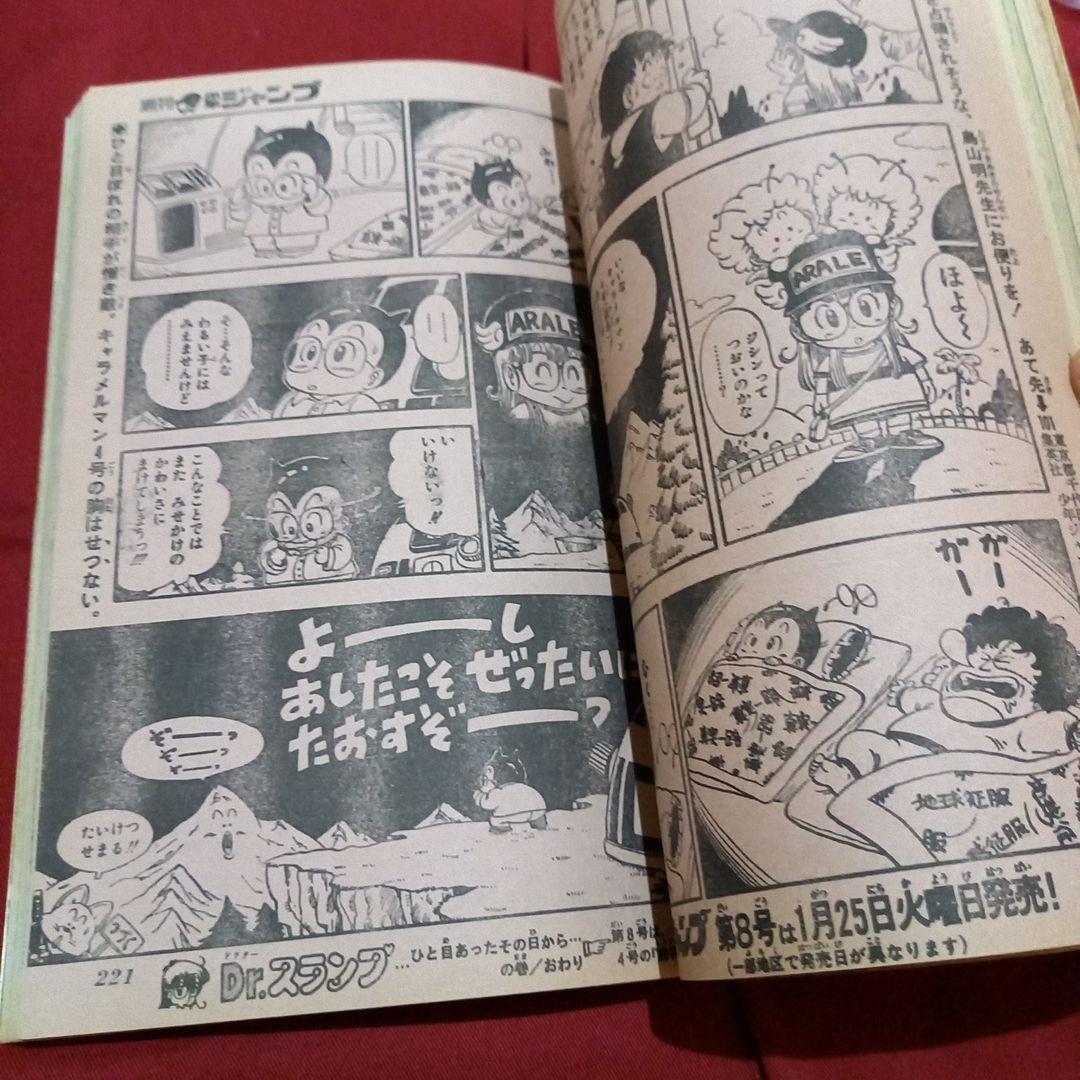 鳥山明先生にお便りを!
あて先
101
集英社
ARALE
ほよ〜
ジシンって
つおいのかな
………?
ガーっ
ガー
地球征服
征服
服
第8号は1月25日火曜日発売!
(一部地区で発売日が異なります)
週刊少年ジャンプ
ひと目ぼれの相手が憎き敵。キャラメルマン4号の胸はせつない。
ARALE
そ そんな
わるい子には
みえませんけど
…………
い
いけないっ!!
こんなことでは
また みせかけの
かわいさに
まけてしまうっ!!!
よーーし
あしたこそ ぜったいに
たおすぞーーっ
ぞーーっ
ぞーーっ
ぞーーっ
たいけつ
せまる!!
221
ドクター
Dr.スランプ
…ひと目あったその日から…
の巻/おわり
第8号は
4号の